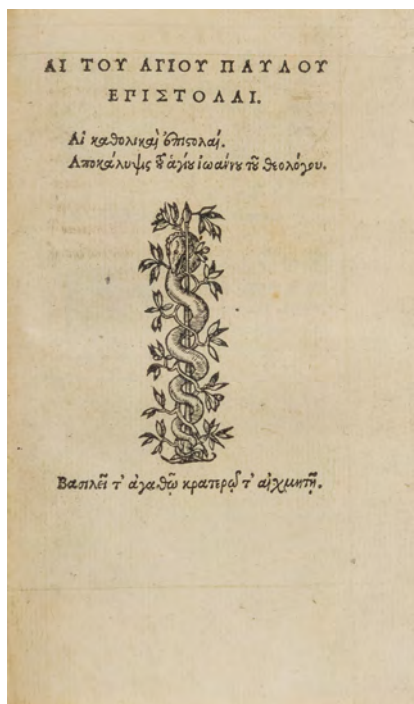 ΑΙ ΤΟΥ ΑΓΙΟΥ ΠΑΥΛΟΥ
ΕΠΙΣΤΟΛΑΙ.
Αἱ καθολικαὶ ἐπιστολαί.
Αποκάλυψις τοῦ ἁγίου ἰωάννου τοῦ θεολόγου.
Βασιλεῖ τ' ἀγαθῷ κρατερῷ τ' αἰχμητῇ.